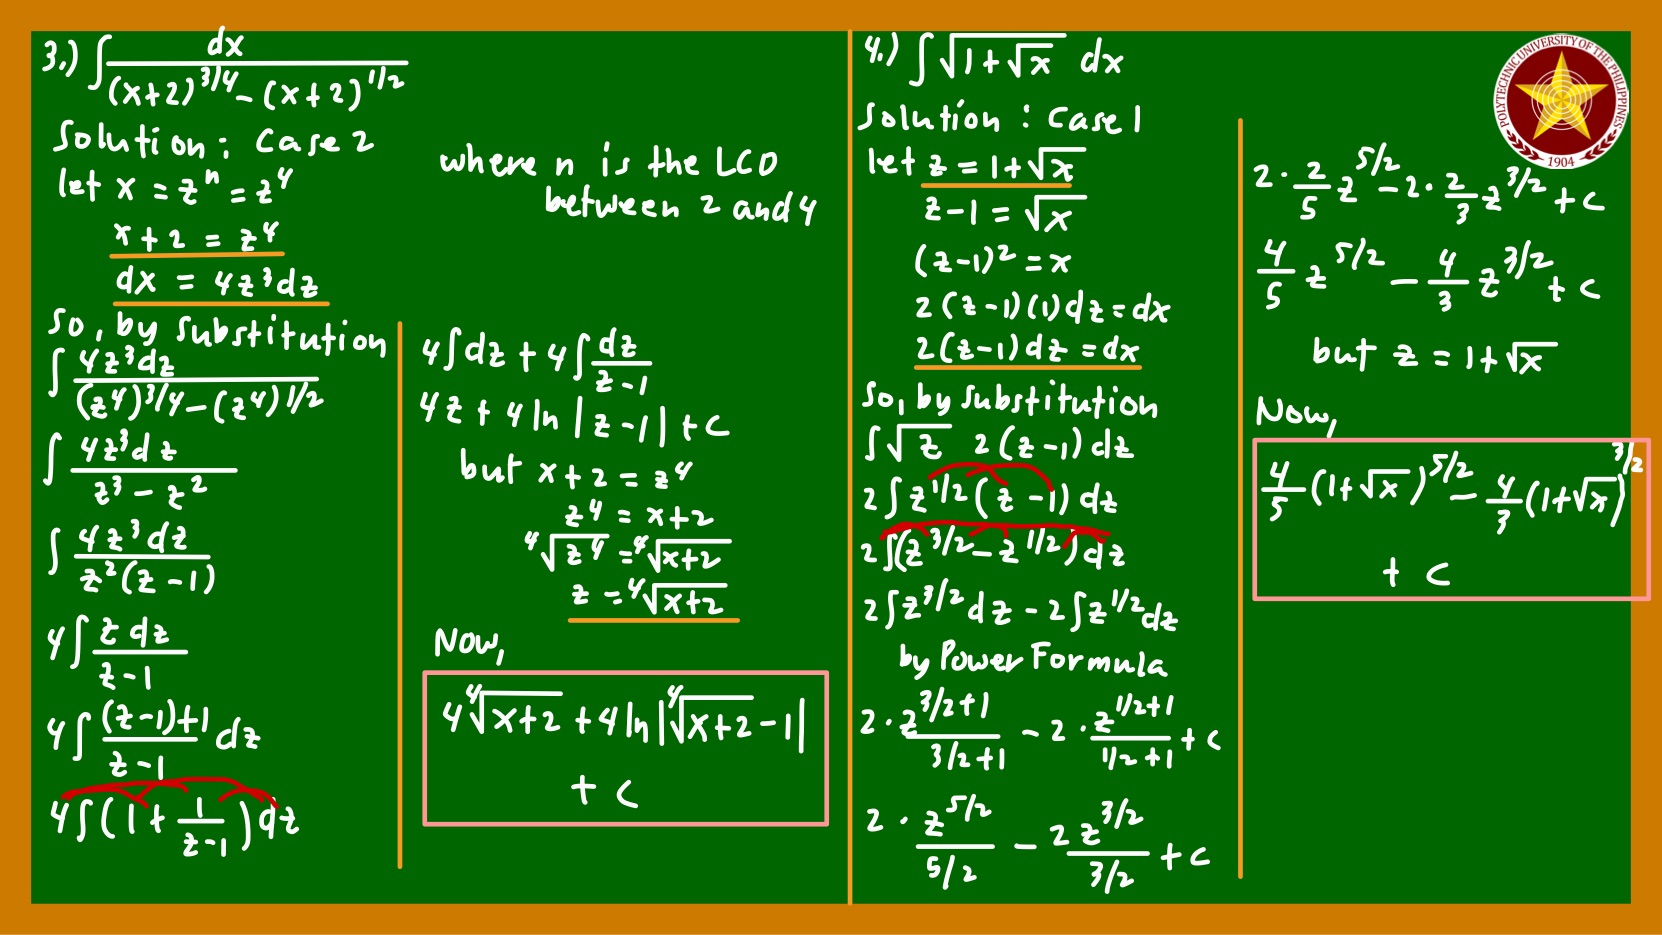 3.) ∫ dx / ((x+2)^3/4 - (x+2)^1/2)
Solution: Case 2
let x = z^n = z^4
where n is the LCD
between 2 and 4
x+2 = z^4
dx = 4z^3 dz
So, by substitution
∫ 4z^3 dz / ((z^4)^3/4 - (z^4)^1/2)
∫ 4z^3 dz / (z^3 - z^2)
∫ 4z^3 dz / (z^2(z-1))
4∫ z dz / (z-1)
4∫ ((z-1)+1)/(z-1) dz
4∫(1 + 1/(z-1)) dz
4∫dz + 4∫ dz/(z-1)
4z + 4 ln|z-1| + c
but x+2 = z^4
z^4 = x+2
⁴√z^4 = ⁴√x+2
z = ⁴√x+2
Now,
4 ⁴√x+2 + 4 ln|⁴√x+2 - 1|
+ c
4.) ∫ √(1+√x) dx
Solution : Case 1
let z = 1+√x
z-1 = √x
(z-1)^2 = x
2(z-1)(1)dz = dx
2(z-1)dz = dx
So, by substitution
∫√z 2(z-1)dz
2∫z^1/2(z-1)dz
2∫(z^3/2 - z^1/2)dz
2∫z^3/2 dz - 2∫z^1/2 dz
by Power Formula
2 · z^(3/2+1)/(3/2+1) - 2 · z^(1/2+1)/(1/2+1) + c
2 · z^5/2/(5/2) - 2 z^3/2/(3/2) + c
2 · 2/5 z^5/2 - 2 · 2/3 z^3/2 + c
4/5 z^5/2 - 4/3 z^3/2 + c
but z = 1+√x
Now,
4/5 (1+√x)^5/2 - 4/3 (1+√x)^3/2
+ c
POLYTECHNIC UNIVERSITY OF THE PHILIPPINES
1904